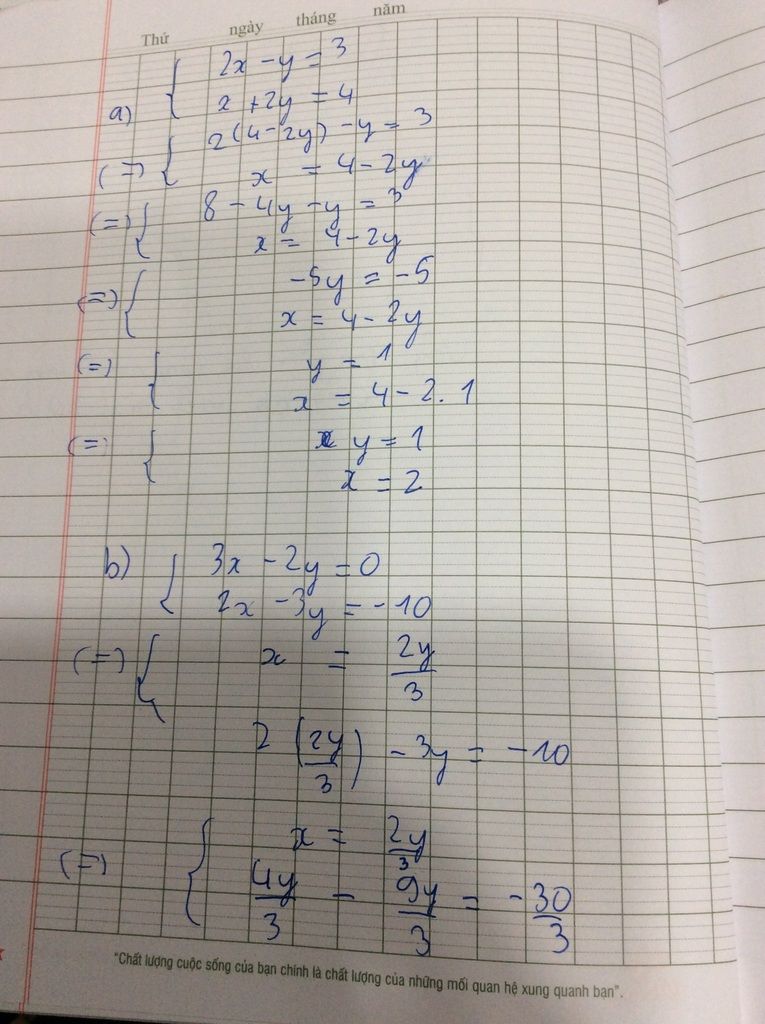 Thứ ngày tháng năm
a) { 2x - y = 3
x + 2y = 4
(=) { 2(4 - 2y) - y = 3
x = 4 - 2y
(=) { 8 - 4y - y = 3
x = 4 - 2y
(=) { -5y = -5
x = 4 - 2y
(=) { y = 1
x = 4 - 2.1
(=) { y = 1
x = 2
b) { 3x - 2y = 0
2x - 3y = -10
(=) { x = 2y/3
2(2y/3) - 3y = -10
(=) { x = 2y/3
4y/3 - 9y/3 = -30/3
"Chất lượng cuộc sống của bạn chính là chất lượng của những mối quan hệ xung quanh bạn".